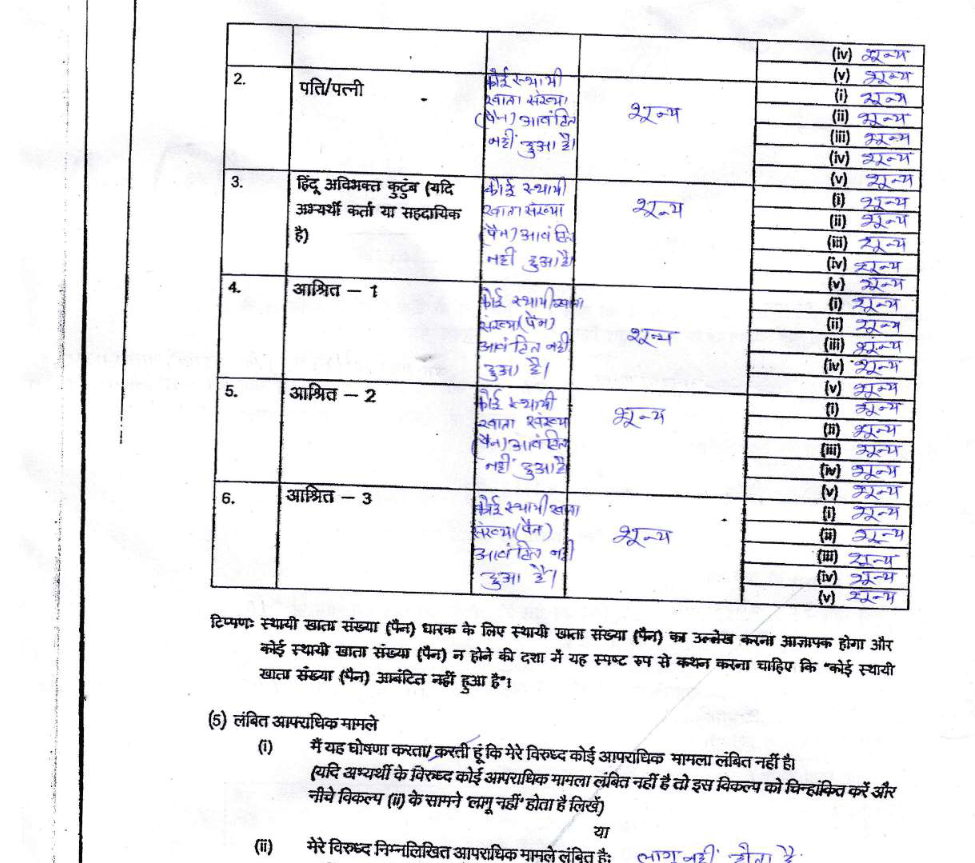 (iv) शून्य
(v) शून्य
2. पति/पत्नी कोई स्थायी खाता संख्या (पैन) आवंटित नहीं हुआ है। शून्य
(i) शून्य
(ii) शून्य
(iii) शून्य
(iv) शून्य
(v) शून्य
3. हिंदू अविभक्त कुटुंब (यदि
अभ्यर्थी कर्ता या सहदायिक
है)
कोई स्थायी
खाता संख्या
(पैन) आवंटित
नहीं हुआ है।
शून्य
(i) शून्य
(ii) शून्य
(iii) शून्य
(iv) शून्य
(v) शून्य
4. आश्रित – 1
कोई स्थायी खाता
संख्या (पैन)
आवंटित नहीं
हुआ है।
शून्य
(i) शून्य
(ii) शून्य
(iii) शून्य
(iv) शून्य
(v) शून्य
5. आश्रित – 2
कोई स्थायी
खाता संख्या
(पैन) आवंटित
नहीं हुआ है
शून्य
(i) शून्य
(ii) शून्य
(iii) शून्य
(iv) शून्य
(v) शून्य
6. आश्रित – 3
कोई स्थायी खाता
संख्या (पैन)
आवंटित नहीं
हुआ है।
शून्य
(i) शून्य
(ii) शून्य
(iii) शून्य
(iv) शून्य
(v) शून्य
टिप्पणः स्थायी खाता संख्या (पैन) धारक के लिए स्थायी खाता संख्या (पैन) का उल्लेख करना आज्ञापक होगा और
कोई स्थायी खाता संख्या (पैन) न होने की दशा में यह स्पष्ट रुप से कथन करना चाहिए कि "कोई स्थायी
खाता संख्या (पैन) आबंटित नहीं हुआ है"।
(5) लंबित आपराधिक मामले
(i) मैं यह घोषणा करता/ करती हूं कि मेरे विरुध्द कोई आपराधिक मामला लंबित नहीं है।
(यदि अभ्यर्थी के विरुध्द कोई आपराधिक मामला लंबित नहीं है तो इस विकल्प को चिन्हांकित करें और
नीचे विकल्प (ii) के सामने 'लागू नहीं' होता है लिखें)
या
(ii) मेरे विरुध्द निम्नलिखित आपराधिक मामले लंबित है: लागू नहीं होता है